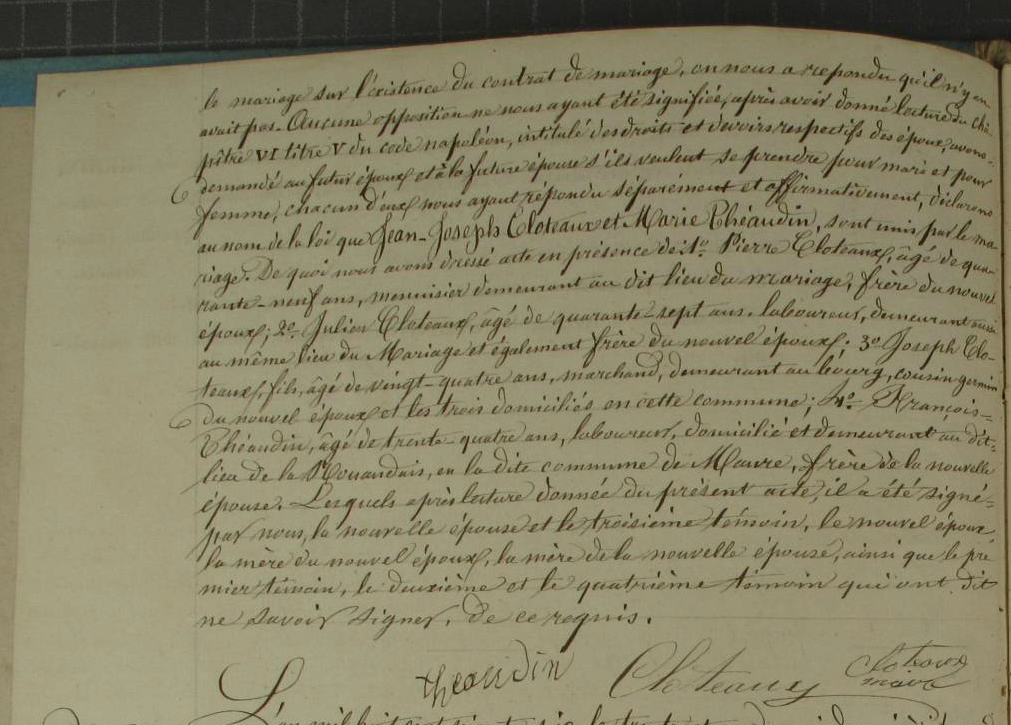 le mariage sur l'éxistence du contrat de mariage, on nous a repondu qu'il n'y en
avait pas. Aucune opposition ne nous ayant été signifiée, après avoir donné lecture du cha-
pitre VI titre V du code napoléon, intitulé des droits et devoirs respectifs des époux, avons
demandé au futur époux et à la future épouse s'ils veulent se prendre pour mari et pour
femme, chacun d'eux nous ayant répondu séparément et affirmativement, déclarons
au nom de la loi que Jean-Joseph Cloteaux et Marie Théaudin, sont unis par le ma
riage. De quoi nous avons dressé acte en présence de: 1o. Pierre Cloteaux, âgé de qua-
rante-neuf ans, menuisier demeurant au dit lieu du mariage, frère du nouvel
époux; 2o. Julien Cloteaux, âgé de quarante-sept ans, laboureur, demeurant aussi
au même lieu du Mariage et également frère du nouvel époux; 3o Joseph Clo-
teaux, fils, âgé de vingt-quatre ans, marchand, demeurant au bourg, cousin germain
du nouvel époux et les trois domiciliés en cette commune; 4o. François-
Théaudin, âgé de trente-quatre ans, laboureur, domicilié et demeurant au dit-
lieu de la en la dite commune de Maure, frère de la nouvelle
épouse. Lesquels après lecture donnée du présent acte, il a été signé-
par nous, la nouvelle épouse et le troisième témoin, le nouvel époux,
la mère du nouvel époux, la mère de la nouvelle épouse, ainsi que le pre
mier témoin, le deuxième et le quatrième témoin qui ont dit
ne savoir signer, de ce requis.
theaudin Cloteaux
L'an mil huit cent